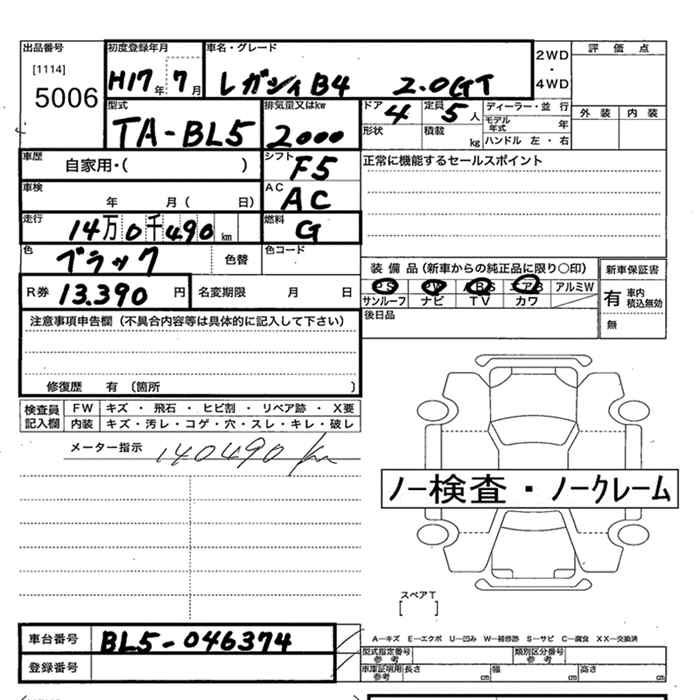 出品番号 初度登録年月 車名・グレード 2WD・4WD 評価点
[1114]
5006 H17年 7月 レガシィB4 2.0GT
外装 内装
型式 排気量又はkw ドア 4 定員 5人 ディーラー・並行
TA-BL5 2000 モデル年式 年
形状 積載 kg ハンドル 左・右
車歴 自家用・( ) シフト F5 正常に機能するセールスポイント
車検 年 月( 日) AC AC
走行 14万0千490km 燃料 G
色 ブラック 色替 色コード
装備品(新車からの純正品に限り○印) 新車保証書
R券 13.390円 名変期限 月 日 PS PW ABS エアB アルミW 有 車内積込無効
サンルーフ ナビ TV カワ
無
注意事項申告欄(不具合内容等は具体的に記入して下さい) 後日品
修復歴 有 (箇所 )
検査員記入欄 FW キズ・飛石・ヒビ割・リペア跡・X要
内装 キズ・汚レ・コゲ・穴・スレ・キレ・破レ
メーター指示 140490km
ノー検査・ノークレーム
スペアT
[ ]
車台番号 BL5-046374
A―キズ E―エクボ U―凹み W―補修跡 S―サビ C―腐食 XX―交換済
型式指定番号 参考 類別区分番号 参考
登録番号 車庫証明用参考 長さ cm 幅 cm 高さ cm